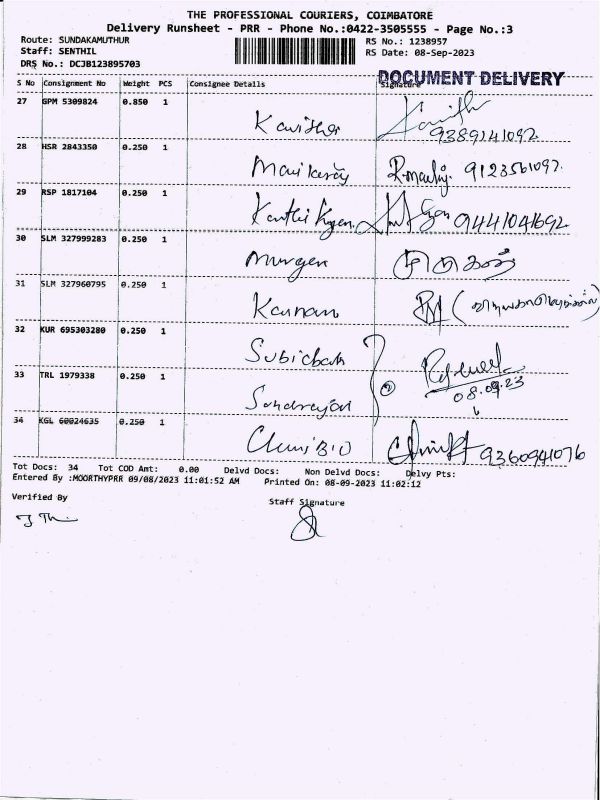 THE PROFESSIONAL COURIERS, COIMBATORE
Delivery Runsheet - PRR - Phone No.:0422-3505555 - Page No.:3
Route: SUNDAKAMUTHUR RS No.: 1238957
Staff: SENTHIL RS Date: 08-Sep-2023
DRS No.: DCJB123895703
DOCUMENT DELIVERY
S No Consignment No Weight PCS Consignee Details Signature
27 GPM 5309824 0.850 1 Kavitha 9389141092
28 HSR 2843350 0.250 1 9123561092
29 RSP 1817104 0.250 1 9441041692
30 SLM 327999283 0.250 1 Murgan முருகன்
31 SLM 327960795 0.250 1 Kannan
32 KUR 695303280 0.250 1
33 TRL 1979338 0.250 1 08.09.23
34 KGL 60024635 0.250 1 9360941076
Tot Docs: 34 Tot COD Amt: 0.00 Delvd Docs: Non Delvd Docs: Delvy Pts:
Entered By :MOORTHYPRR 09/08/2023 11:01:52 AM Printed On: 08-09-2023 11:02:12
Verified By Staff Signature